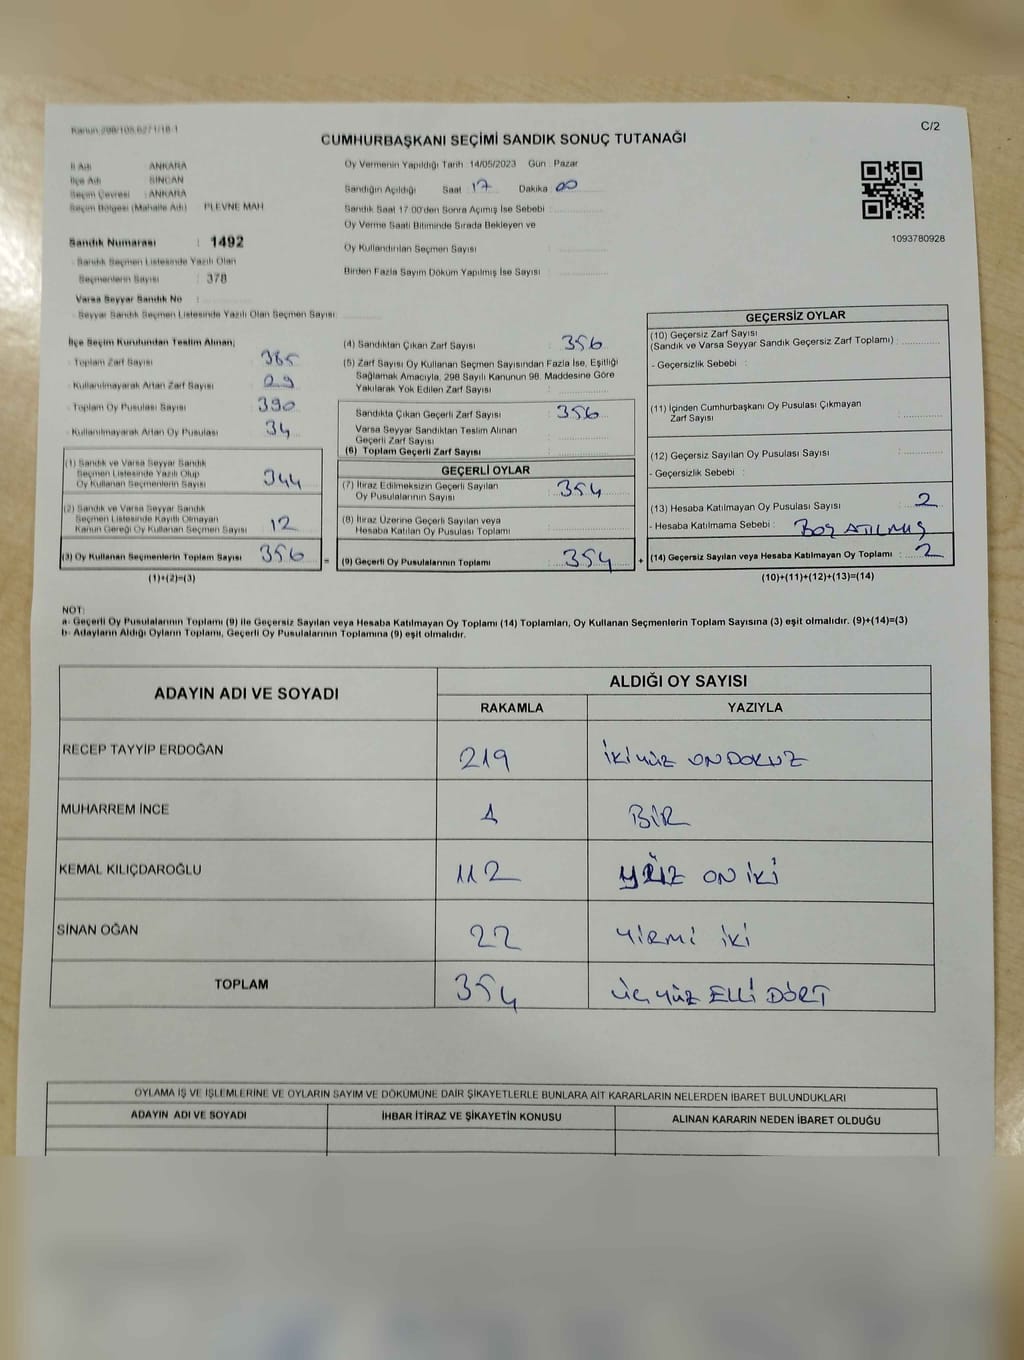 Kanun 298/105,6271/18-1
C/2
CUMHURBAŞKANI SEÇİMİ SANDIK SONUÇ TUTANAĞI
İl Adı : ANKARA
İlçe Adı : SİNCAN
Seçim Çevresi : ANKARA
Seçim Bölgesi (Mahalle Adı) : PLEVNE MAH
Sandık Numarası : 1492
Sandık Seçmen Listesinde Yazılı Olan
Seçmenlerin Sayısı : 378
Varsa Seyyar Sandık No :
Seyyar Sandık Seçmen Listesinde Yazılı Olan Seçmen Sayısı:
Oy Vermenin Yapıldığı Tarih 14/05/2023 Gün : Pazar
Sandığın Açıldığı Saat 17 Dakika 00
Sandık Saat 17:00'den Sonra Açımış İse Sebebi :
Oy Verme Saati Bitiminde Sırada Bekleyen ve
Oy Kullandırılan Seçmen Sayısı :
Birden Fazla Sayım Döküm Yapılmış İse Sayısı :
1093780928
İlçe Seçim Kurulundan Teslim Alınan;
Toplam Zarf Sayısı : 385
Kullanılmayarak Artan Zarf Sayısı : 29
Toplam Oy Pusulası Sayısı : 390
Kullanılmayarak Artan Oy Pusulası : 34
(1) Sandık ve Varsa Seyyar Sandık
Seçmen Listesinde Yazılı Olup
Oy Kullanan Seçmenlerin Sayısı : 344
(2) Sandık ve Varsa Seyyar Sandık
Seçmen Listesinde Kayıtlı Olmayan
Kanun Gereği Oy Kullanan Seçmen Sayısı : 12
(3) Oy Kullanan Seçmenlerin Toplam Sayısı : 356
(1)+(2)=(3)
(4) Sandıktan Çıkan Zarf Sayısı : 356
(5) Zarf Sayısı Oy Kullanan Seçmen Sayısından Fazla İse, Eşitliği
Sağlamak Amacıyla, 298 Sayılı Kanunun 98. Maddesine Göre
Yakılarak Yok Edilen Zarf Sayısı :
Sandıkta Çıkan Geçerli Zarf Sayısı : 356
Varsa Seyyar Sandıktan Teslim Alınan
Geçerli Zarf Sayısı :
(6) Toplam Geçerli Zarf Sayısı
GEÇERLİ OYLAR
(7) İtiraz Edilmeksizin Geçerli Sayılan
Oy Pusulalarının Sayısı : 354
(8) İtiraz Üzerine Geçerli Sayılan veya
Hesaba Katılan Oy Pusulası Toplamı :
= (9) Geçerli Oy Pusulalarının Toplamı : 354
GEÇERSİZ OYLAR
(10) Geçersiz Zarf Sayısı
(Sandık ve Varsa Seyyar Sandık Geçersiz Zarf Toplamı) :
- Geçersizlik Sebebi :
(11) İçinden Cumhurbaşkanı Oy Pusulası Çıkmayan
Zarf Sayısı :
(12) Geçersiz Sayılan Oy Pusulası Sayısı :
- Geçersizlik Sebebi :
(13) Hesaba Katılmayan Oy Pusulası Sayısı : 2
- Hesaba Katılmama Sebebi : BOŞ ATILMIŞ
+ (14) Geçersiz Sayılan veya Hesaba Katılmayan Oy Toplamı : 2
(10)+(11)+(12)+(13)=(14)
NOT:
a- Geçerli Oy Pusulalarının Toplamı (9) ile Geçersiz Sayılan veya Hesaba Katılmayan Oy Toplamı (14) Toplamları, Oy Kullanan Seçmenlerin Toplam Sayısına (3) eşit olmalıdır. (9)+(14)=(3)
b- Adayların Aldığı Oyların Toplamı, Geçerli Oy Pusulalarının Toplamına (9) eşit olmalıdır.
ADAYIN ADI VE SOYADI
ALDIĞI OY SAYISI
RAKAMLA YAZIYLA
RECEP TAYYİP ERDOĞAN 219 İKİ YÜZ ON DOKUZ
MUHARREM İNCE 1 BİR
KEMAL KILIÇDAROĞLU 112 YÜZ ON İKİ
SİNAN OĞAN 22 YİRMİ İKİ
TOPLAM 354 ÜÇ YÜZ ELLİ DÖRT
OYLAMA İŞ VE İŞLEMLERİNE VE OYLARIN SAYIM VE DÖKÜMÜNE DAİR ŞİKAYETLERLE BUNLARA AİT KARARLARIN NELERDEN İBARET BULUNDUKLARI
ADAYIN ADI VE SOYADI İHBAR İTİRAZ VE ŞİKAYETİN KONUSU ALINAN KARARIN NEDEN İBARET OLDUĞU